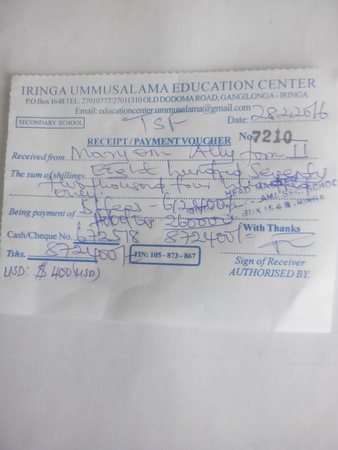 IRINGA UMMUSALAMA EDUCATION CENTER
P.O.Box 1648 TEL: 27010777/27011310 OLD DODOMA ROAD, GANGILONGA - IRINGA
Email: educationcenter.ummusalama@gmail.com
SECONDARY SCHOOL TSF Date: 28.2.2016
RECEIPT/PAYMENT VOUCHER No 7210
Received from Maryam Ally form II
The sum of shillings Eight hundred Seventy
two thousand four
HEAD
Being payment of S/fees - 612400/=
260000/=
Cash/Cheque No. 672518 872400/= With Thanks
Tshs. 872400/= TIN: 105 - 873 - 867 Sign of Receiver
USD: $ 400 (USD) AUTHORISED BY.